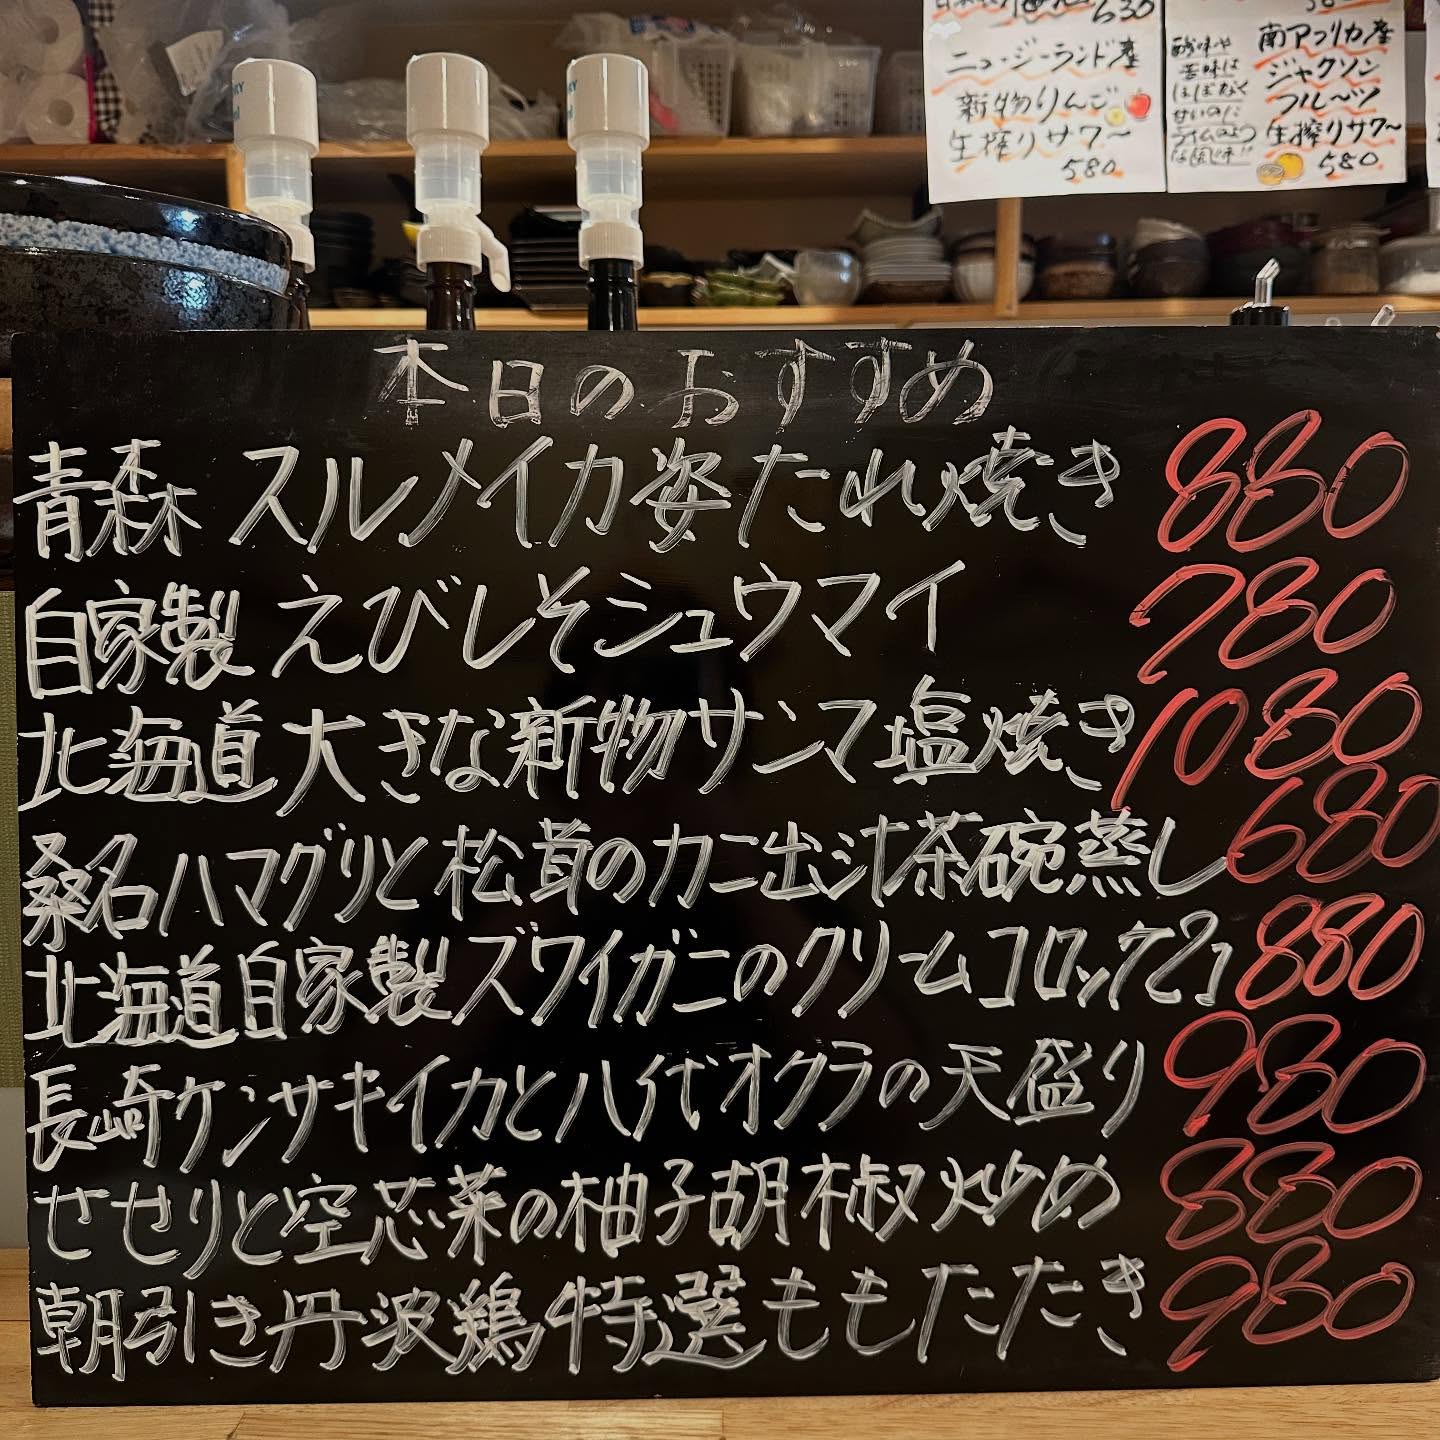 630
ニュージーランド産
新物りんご
生搾りサワー
580
南アフリカ産
ジャクソン
フルーツ
生搾りサワー
580
酸味や
苦味は
ほぼなく
甘いのに
ライムのよう
な風味!!
本日のおすすめ
青森 スルメイカ姿たれ焼き 880
自家製 えびしそシュウマイ 780
北海道大きな新物サンマ塩焼き 1080
桑名ハマグリと松茸のカニ出汁茶碗蒸し 680
北海道自家製ズワイガニのクリームコロッケ2コ 880
長崎ケンサキイカと八代オクラの天盛り 980
せせりと空芯菜の柚子胡椒炒め 880
朝引き丹波鶏特選ももたたき 980